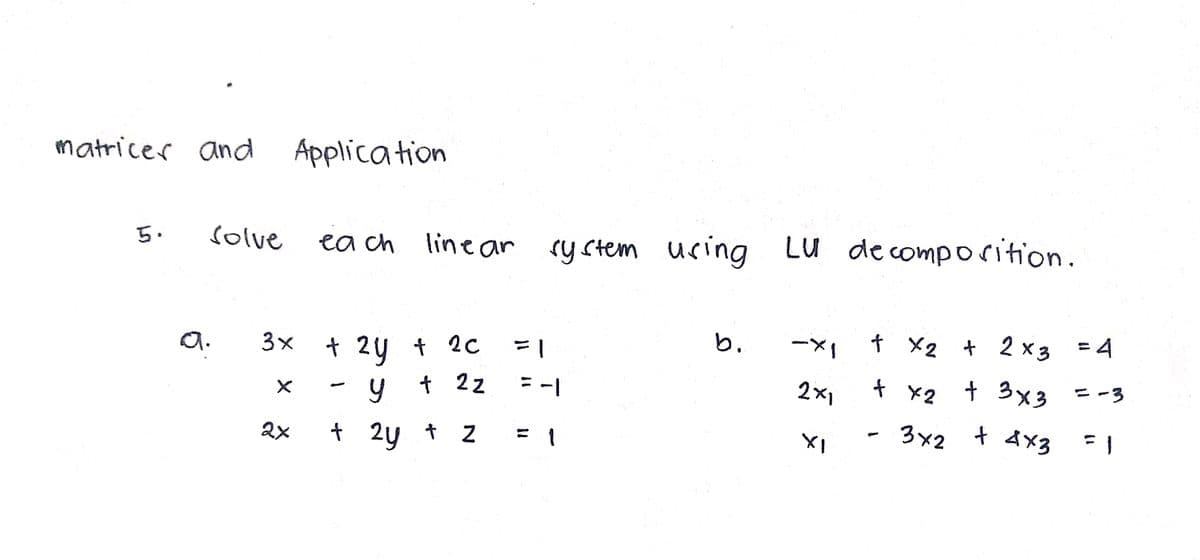 matrices and Application
5. solve each linear system using LU decomposition.
a. 3x + 2y + 2c = 1
x - y + 2z = -1
2x + 2y + z = 1
b. -x1 + x2 + 2x3 = 4
2x1 + x2 + 3x3 = -3
x1 - 3x2 + 4x3 = 1